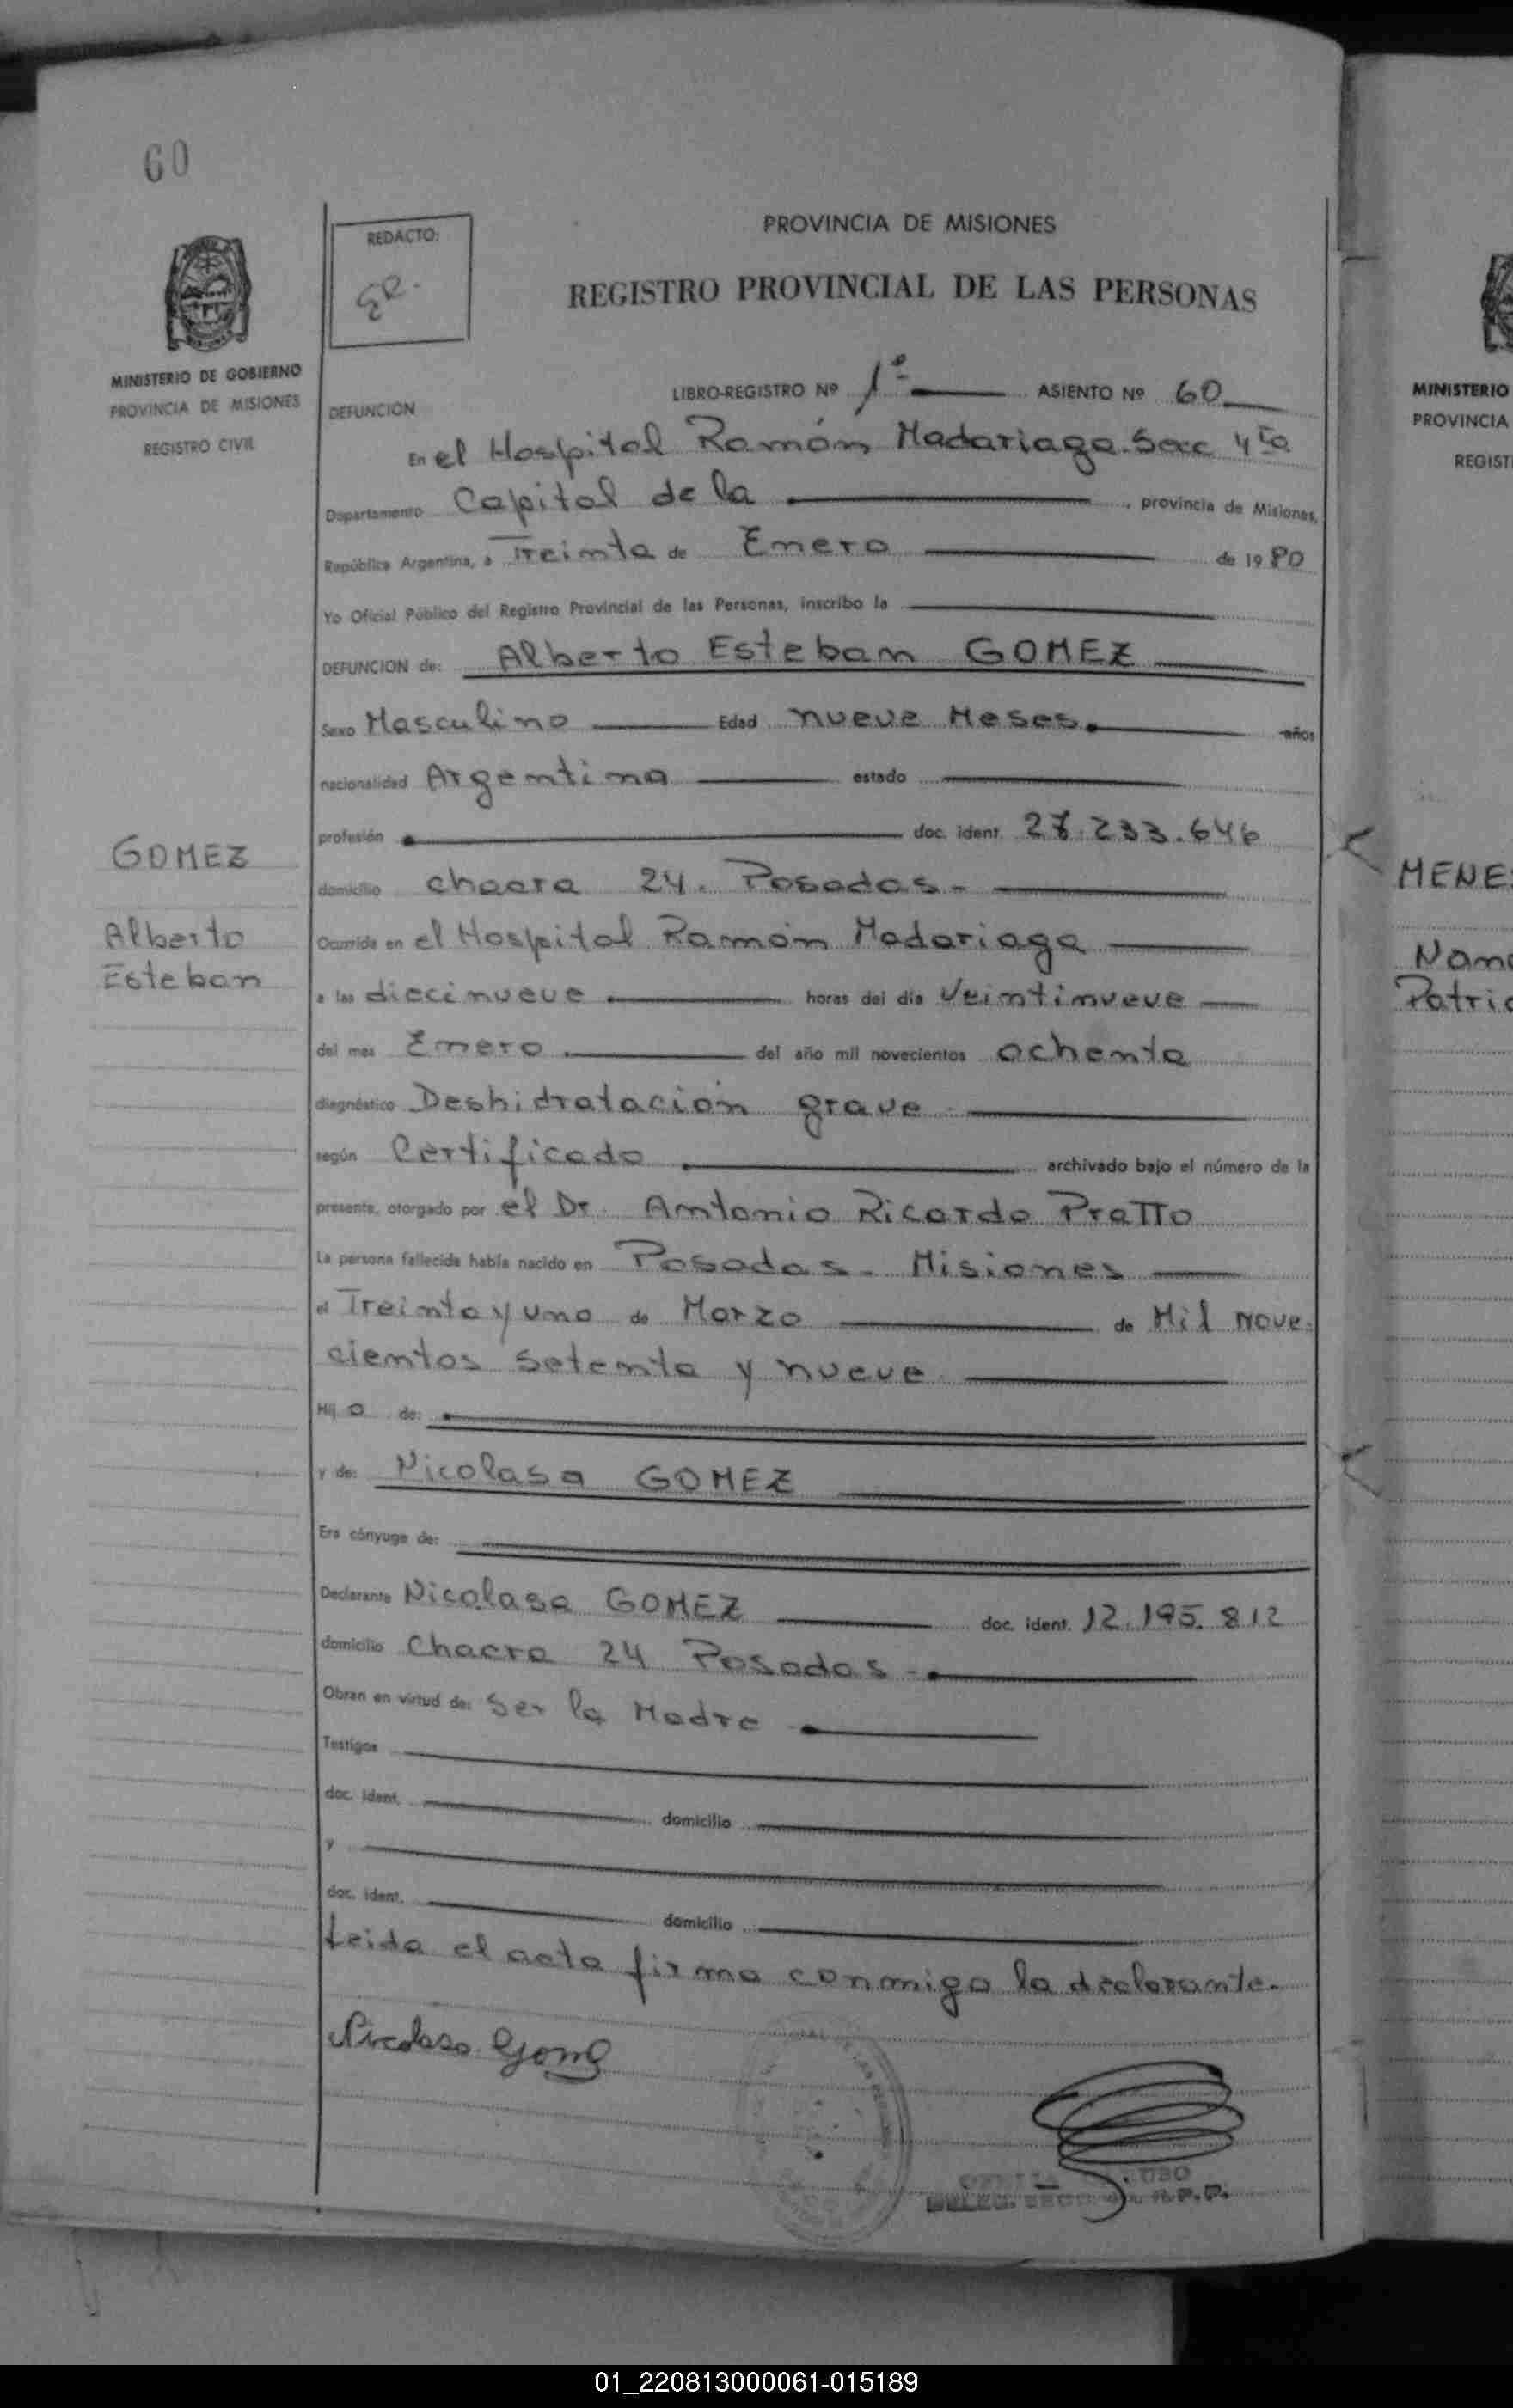 60
REDACTO:
PROVINCIA DE MISIONES
REGISTRO PROVINCIAL DE LAS PERSONAS
MINISTERIO DE GOBIERNO
PROVINCIA DE MISIONES
REGISTRO CIVIL
LIBRO-REGISTRO Nº 1º ASIENTO Nº 60
DEFUNCION
En el Hospital Ramón Madariaga. Secc 4ta
Departamento Capital de la , provincia de Misiones,
República Argentina, a Treinta de Enero de 1980
Yo Oficial Público del Registro Provincial de las Personas, inscribo la
DEFUNCION de: Alberto Esteban GOMEZ
Sexo Masculino Edad nueve Meses. años
nacionalidad Argentina estado
profesión doc. ident. 27.233.646
GOMEZ
Alberto
Esteban
domicilio chacra 24. Posadas.-
Ocurrida en el Hospital Ramón Madariaga
a las diecinueve horas del día Veintinueve
del mes Enero del año mil novecientos ochenta
diagnóstico Deshidratación grave
según Certificado archivado bajo el número de la
presente, otorgado por el Dr. Antonio Ricardo Pratto
La persona fallecida había nacido en Posadas. Misiones
el Treinta y uno de Marzo de Mil nove.
cientos setenta y nueve
Hijo de:
y de: Nicolasa GOMEZ
Era cónyuge de:
Declarante Nicolasa GOMEZ doc. ident. 12.195.812
domicilio Chacra 24 Posadas -
Obran en virtud de: Ser la Madre
Testigos
doc. ident. domicilio
y
doc. ident. domicilio
Leida el acta firma conmigo la declarante.
Nicolasa Gomez
R.P.P.
MINISTERIO
PROVINCIA
REGIST
MENE
Patric
01_220813000061-015189